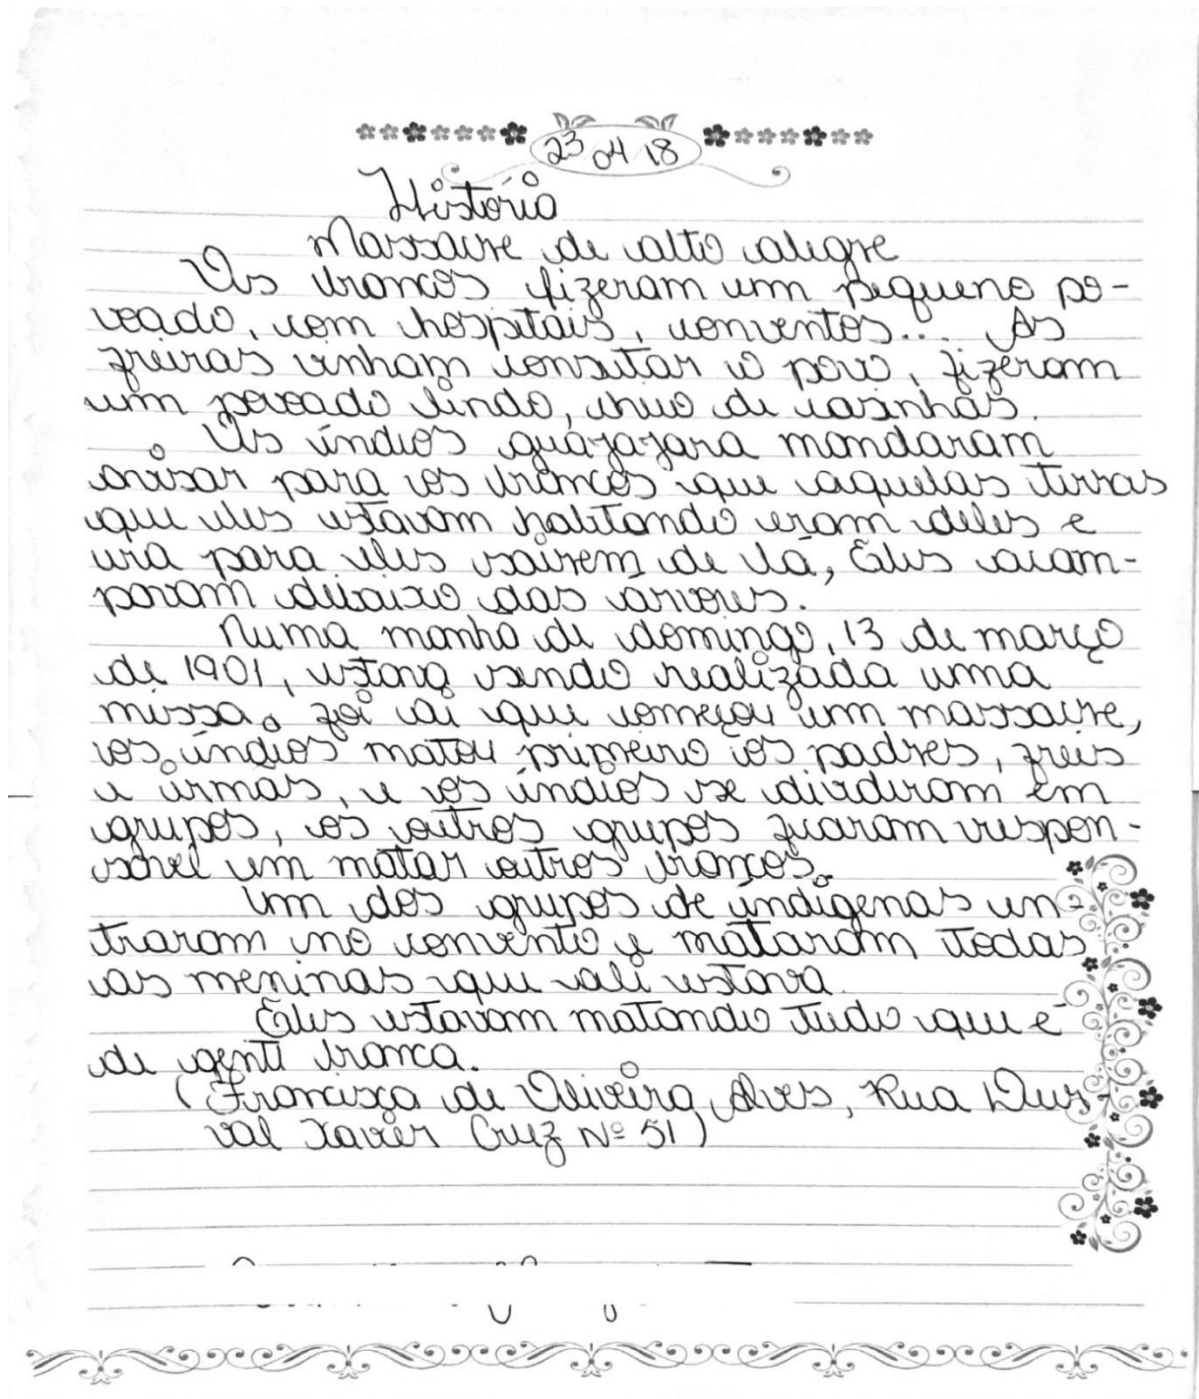 23 04 18
História
Massacre de alto alegre
Os brancos fizeram um pequeno po-
voado, com hospitais, conventos... As
freiras vinham consutar o povo, fizeram
um povoado lindo, cheio de casinhas.
Os índios guazazara mandaram
avisar para os brancos que aquelas terras
que eles estavam habitando eram deles e
era para eles saírem de lá, Eles acam-
param debaixo das árvores.
Numa manhã de domingo, 13 de março
de 1901, estava sendo realizada uma
missa. foi ai que começou um massacre,
os índios matou primeiro os padres, freis
e irmãs, e os índios se dividiram em
grupos, os outros grupos ficaram respon-
sável em matar outros brancos.
Um dos grupos de indígenas en-
traram no convento e mataram todas
as meninas que ali estava.
Eles estavam matando tudo que é
de gente branca.
(Francisca de Oliveira Alves, Rua Deus-
val Xavier Cruz Nº 51)